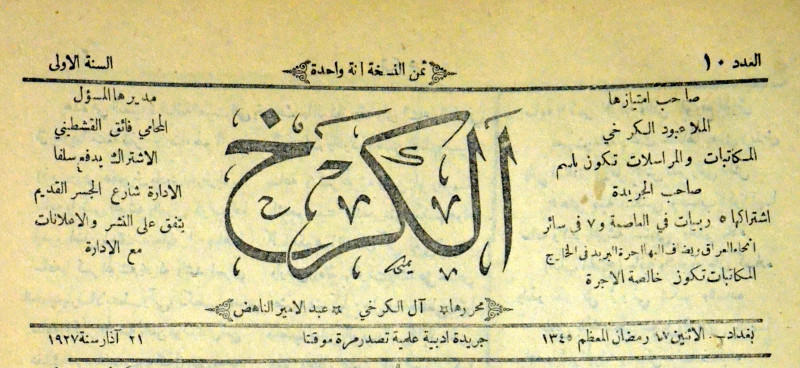 العدد ١٠
ثمن النسخة انة واحدة
السنة الاولى
صاحب امتيازها
الملا عبود الكرخي
المكاتبات والمراسلات تكون باسم
صاحب الجريدة
اشتراكها ٥ ربيات في العاصمة و ٧ في سائر
انحاء العراق ويضاف اليها اجرة البريد في الخارج
المكاتبات تكون خالصة الاجرة
الكرخ
مديرها المسؤل
المحامي فائق القشطيني
الاشتراك يدفع سلفا
الادارة شارع الجسر القديم
يتفق على النشر والاعلانات
مع الادارة
محررها * آل الكرخي * عبد الامير الناهض
بغداد ـ الاثنين ١٧ رمضان المعظم ١٣٤٥
جريدة ادبية علمية تصدر مرة موقتا
٢١ آذار سنة ١٩٢٧